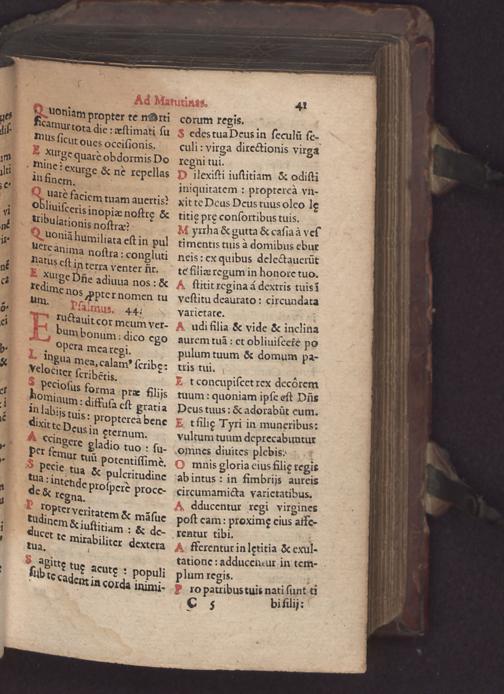 Ad Matutinas.
41
Quoniam propter te morti
ficamur tota die : æstimati su
mus sicut oues occisionis.
Exurge quarè obdormis Do
mine : exurge & nè repellas
in finem.
Quarè faciem tuam auertis?
obliuisceris inopiæ nostrę &
tribulationis nostræ?
Quoniā humiliata est in pul
uere anima nostra : congluti
natus est in terra venter nr̄.
Exurge Dñe adiuua nos : &
redime nos ꝓpter nomen tu
um.
Psalmus. 44.
Eructauit cor meum ver-
bum bonum : dico ego
opera mea regi.
Lingua mea, calam⁹ scribę :
velociter scribētis.
Speciosus forma præ filijs
hominum : diffusa est gratia
in labijs tuis : propterea bene
dixit te Deus in ęternum.
Accingere gladio tuo : su-
per femur tuū potentissimè.
Specie tua & pulcritudine
tua : intende prosperè proce-
de & regna.
Propter veritatem & māsue
tudinem & iustitiam : & de-
ducet te mirabiliter dextera
tua.
Sagittę tuę acutę : populi
sub te cadent in corda inimi-
corum regis.
Sedes tua Deus in seculū se-
culi : virga directionis virga
regni tui.
Dilexisti iustitiam & odisti
iniquitatem : proptereà vn-
xit te Deus Deus tuus oleo lę
titię prę consortibus tuis.
Myrrha & gutta & casia à ves
timentis tuis à domibus ebur
neis : ex quibus delectauerūt
te filiæ regum in honore tuo.
Astitit regina á dextris tuis ī
vestitu deaurato : circundata
varietare.
Audi filia & vide & inclina
aurem tuā : et obliuiscere po
pulum tuum & domum pa-
tris tui.
Et concupiscet rex decòrem
tuum : quoniam ipse est Dñs
Deus tuus : & adorabūt eum.
Et filię Tyri in muneribus :
vultum tuum deprecabuntur
omnes diuites plebis.
Omnis gloria eius filię regis
ab intus : in fimbrijs aureis
circumamicta varietatibus.
Adducentur regi virgines
post eam : proximę eius affe-
rentur tibi.
Afferentur in lętitia & exul-
tatione : adducentur in tem-
plum regis.
Pro patribus tuis nati sunt ti
C 5
bi filij :